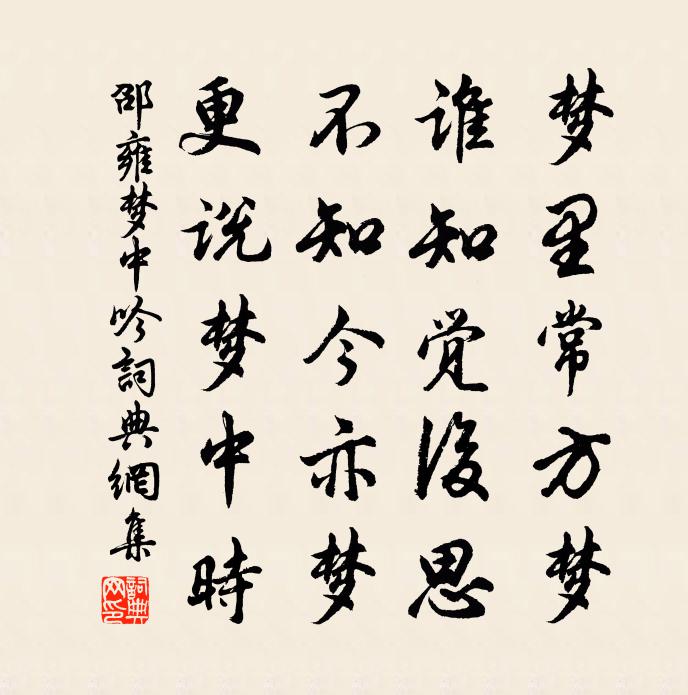 梦里常方梦
谁知觉後思
不知今亦梦
更说梦中時
邵雍梦中吟詞典網集
詞典网印